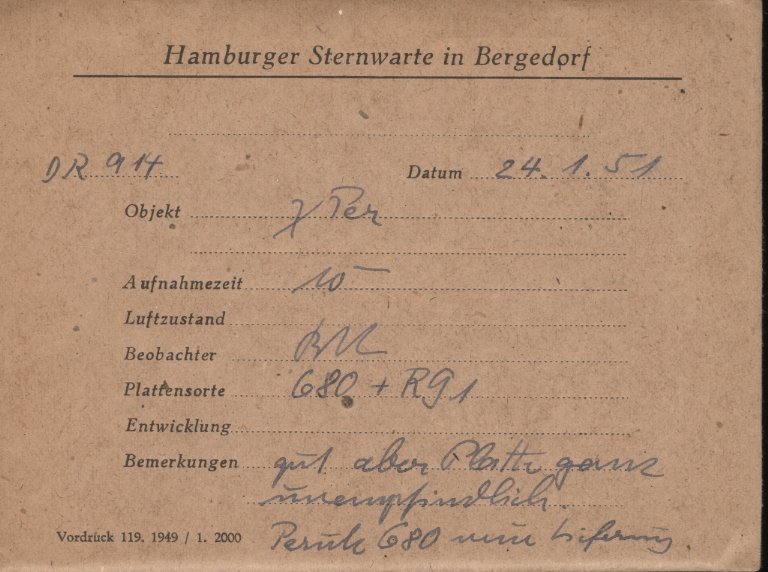 Hamburger Sternwarte in Bergedorf
DR 914 Datum 24. 1. 51
Objekt χ Per
Aufnahmezeit 10
Luftzustand
Beobachter
Plattensorte 680 + RG1
Entwicklung
Bemerkungen gut aber Platte ganz
unempfindlich.
Vordruck 119. 1949 / 1. 2000 Perutz 680 neue Lieferung.